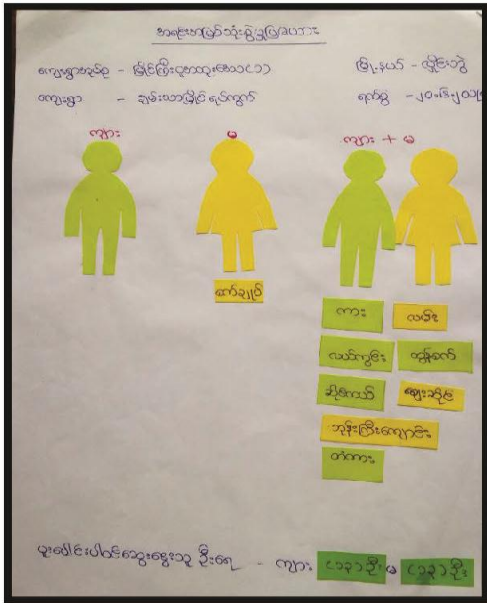 အရင်းအမြစ်သုံးစွဲမှုပြဇယား
ကျေးရွာအုပ်စု - မြိုင်ကြီးငူအထူးဒေသ(၁) မြို့နယ် - လှိုင်းဘွဲ
ကျေးရွာ - ချမ်းသာမြိုင်ရပ်ကွက် ရက်စွဲ
ကျား မ ကျား + မ
စက်ချုပ်
ကား လမ်း
လယ်ကွင်း ထွန်စက်
ဆိုင်ကယ် ဈေးဆိုင်
ဘုန်းကြီးကျောင်း
တဲကား
ပူးပေါင်းပါဝင်ဆွေးနွေးသူ ဦးရေ - ကျား (၁၃)ဦး မ (၁၃)ဦး